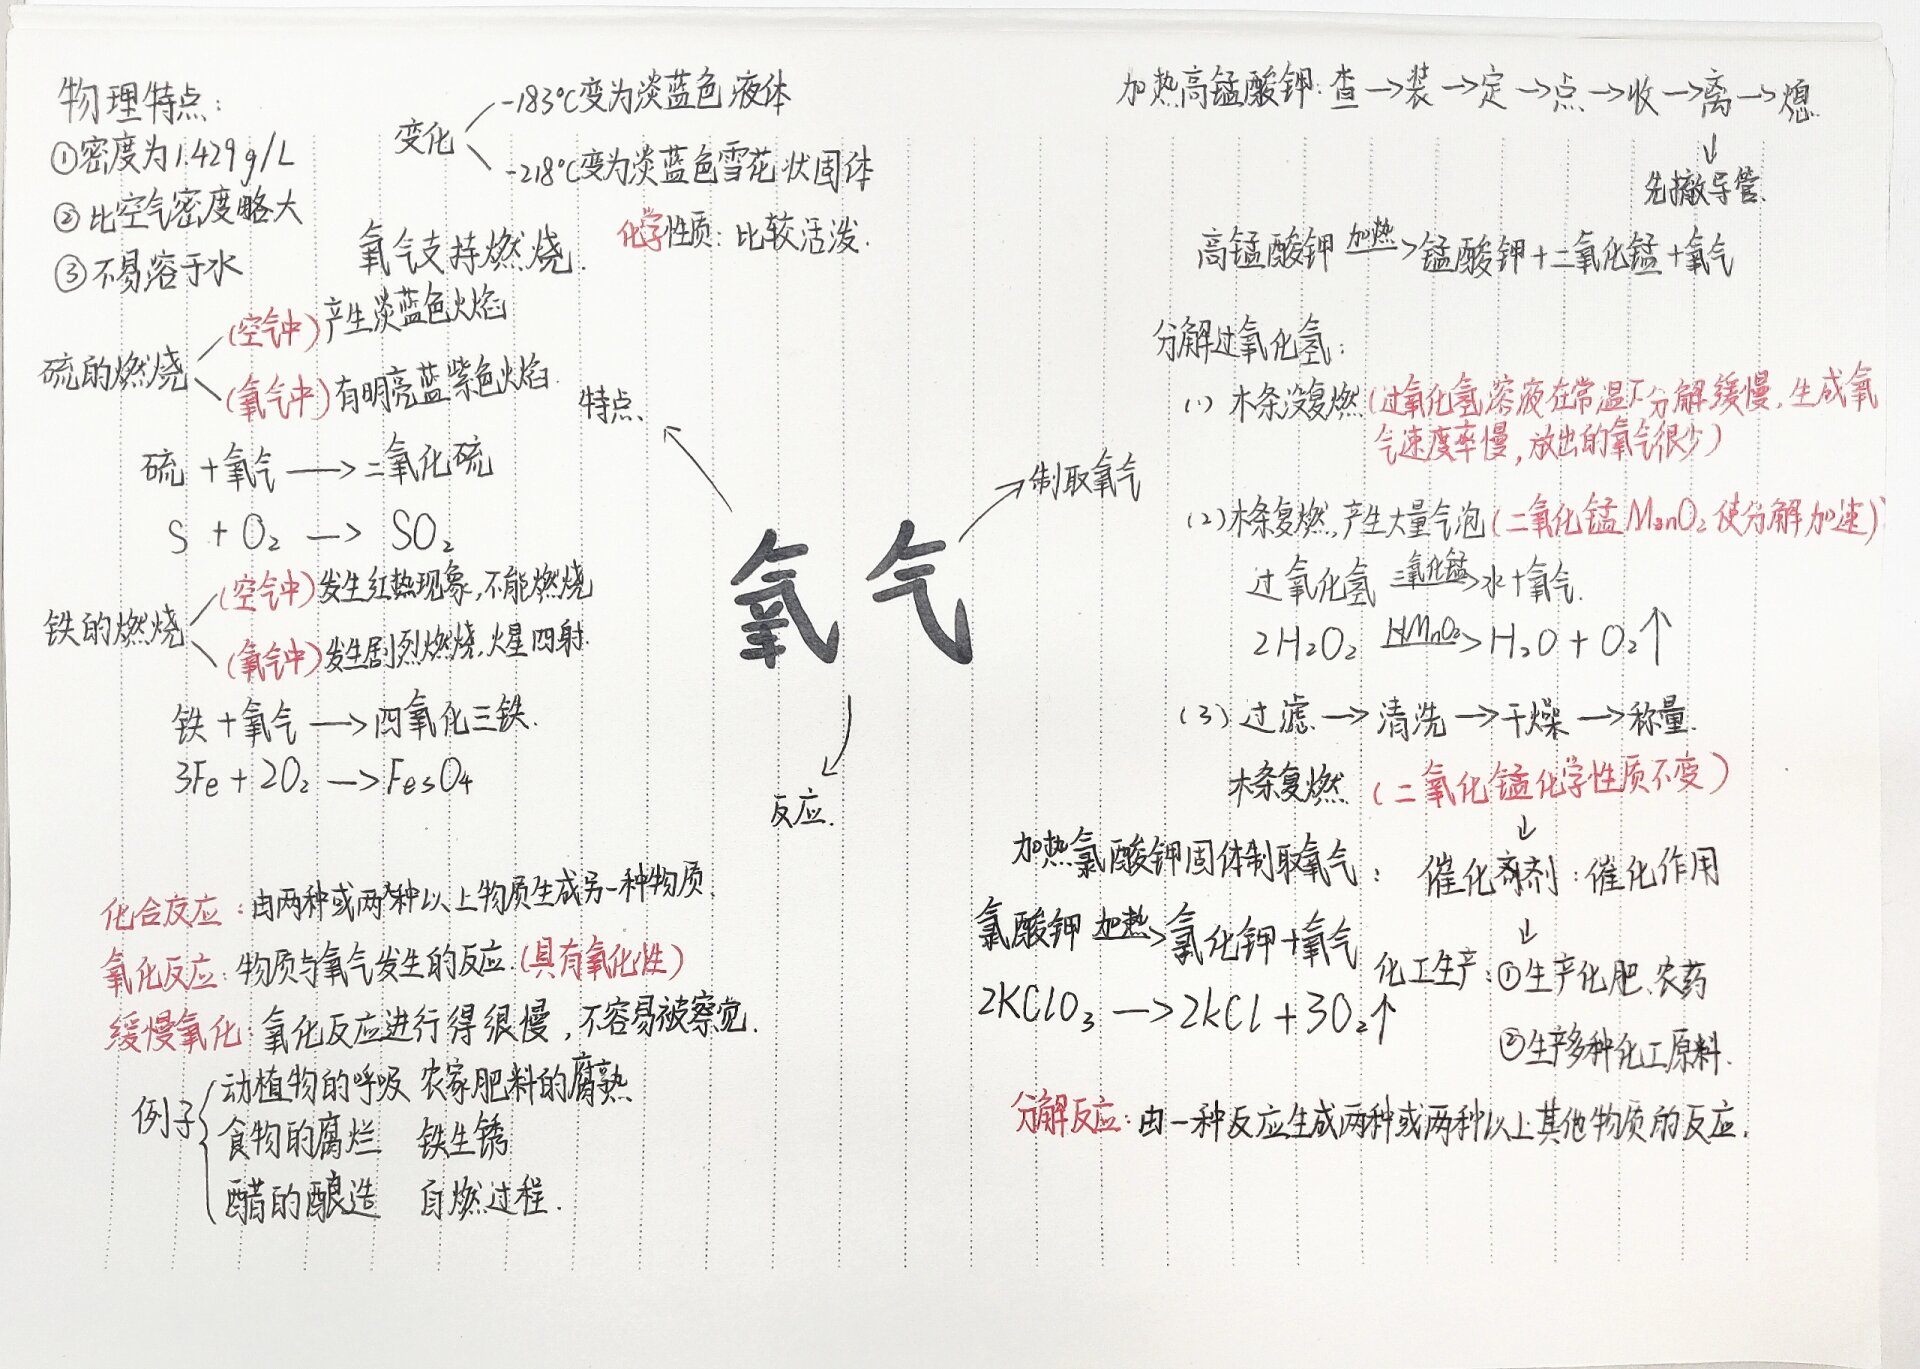 物理特点:
①密度为1.429g/L
②比空气密度略大
③不易溶于水
变化
-183°C变为淡蓝色液体
-218°C变为淡蓝色雪花状固体
氧气支持燃烧.
化学性质: 比较活泼.
硫的燃烧
(空气中)产生淡蓝色火焰
(氧气中)有明亮蓝紫色火焰.
特点.
硫+氧气→二氧化硫
S + O₂ → SO₂
铁的燃烧
(空气中)发生红热现象,不能燃烧
(氧气中)发生剧烈燃烧,火星四射.
铁+氧气→四氧化三铁.
3Fe+2O₂→Fe₃O₄
氧气
反应.
化合反应:由两种或两种以上物质生成另一种物质.
氧化反应:物质与氧气发生的反应.(具有氧化性)
缓慢氧化:氧化反应进行得很慢,不容易被察觉.
例子
动植物的呼吸 农家肥料的腐熟
食物的腐烂 铁生锈
醋的酿造 自燃过程.
制取氧气
加热高锰酸钾:查→装→定→点→收→离→熄.
↓
先撤导管.
高锰酸钾 加热→锰酸钾+二氧化锰+氧气
分解过氧化氢:
(1) 木条没复燃(过氧化氢溶液在常温下分解缓慢,生成氧
气速度率慢,放出的氧气很少)
(2)木条复燃,产生大量气泡(二氧化锰ManO₂使分解加速)
过氧化氢 二氧化锰→水+氧气.
2H₂O₂ MnO₂→H₂O+O₂↑
(3) 过滤→清洗→干燥→称量.
木条复燃 (二氧化锰化学性质不变)
↓
加热氯酸钾固体制取氧气: 催化剂:催化作用
氯酸钾 加热→氯化钾+氧气
↓
化工生产:①生产化肥、农药
2KClO₃→2kCl+3O₂↑
②生产多种化工原料.
分解反应:由一种反应生成两种或两种以上其他物质的反应.